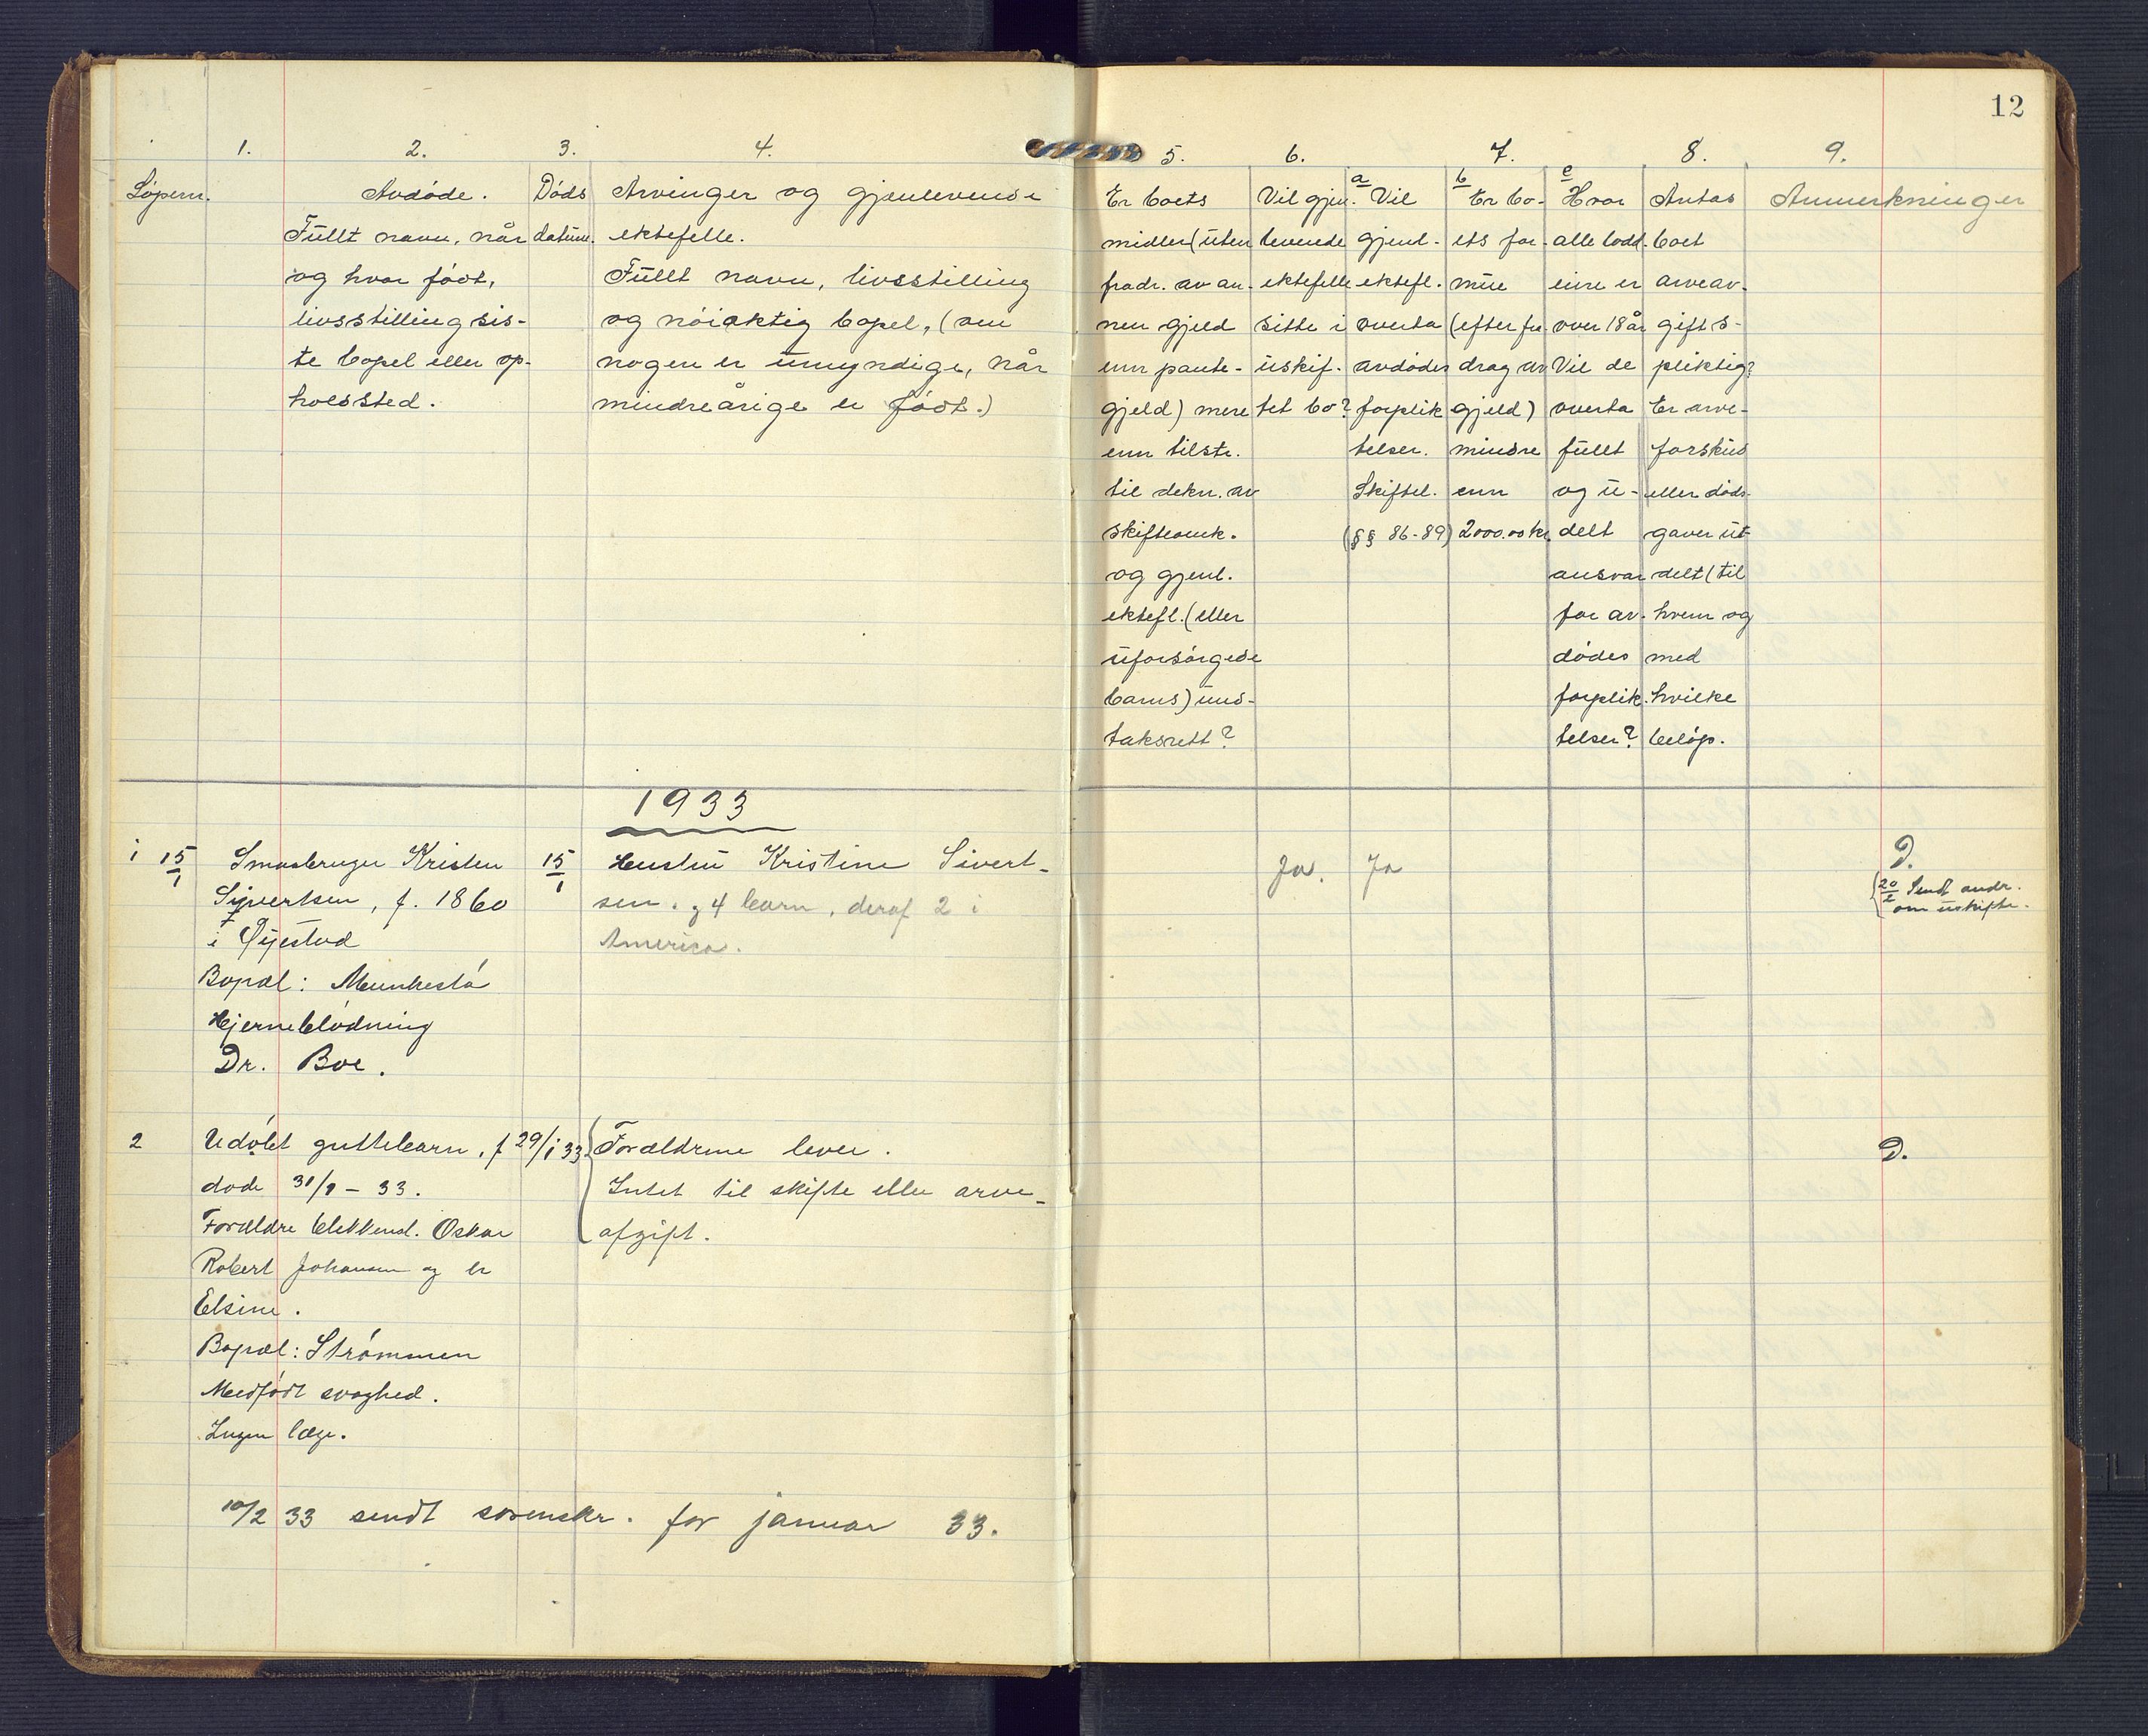 12
1. 2. 3. 4. 5. 6. 7. 8. 9.
Löpenr.
Avdöde.
Fullt navn, når
og hvor född,
livsstilling sis-
te bopel eller op-
holdssted.
Döds
datum.
Arvinger og gjenlevende
ektefelle.
Fullt navn, livsstilling
og nöiaktig bopel, (om
nogen er umyndige, når
mindreårige er född.)
Er boets
midler (uten
fradr. av an-
nen gjeld
enn pante-
gjeld) mere
enn tilstr.
til dekn. av
skifteomk.
og gjenl.
ektefl. (eller
uforsörgede
barns) und-
taksrett?
Vil gjen-
levende
ektefelle
sitte i
uskif-
tet bo?
a
Vil
gjenl.
ektefl.
overta
avdödes
forplik
telser.
Skiftel.
(§§ 86-89)
b
Er bo-
ets for-
mue
(efter fra
drag av
gjeld)
mindre
enn
2000.00 kr.
c
Hvor
alle lodd-
eiere er
over 18 år
Vil de
overta
fullt
og u-
delt
ansvar
for av-
dödes
forplik-
telser?
Antas
boet
arveav-
gifts-
pliktig?
Er arve-
forskud
eller döds-
gaver ut-
delt (til
hvem og
med
hvilke
belöp.
Anmerkninger
1933
1 15/1 Smaabruger Kristen
Sivertsen, f. 1860
i Øyestad
Bopæl: Munkestö
Hjerneblödning
Dr. Boe.
15/1
Hustru Kristine Sivert-
sen. og 4 barn, deraf 2 i
America.
Ja. Ja
D.
20/1 Sendt andr.
om uskifte.
2 Udöbt guttebarn, f 29/1 33.
döde 31/1 - 33.
Forældre blikkensl. Oskar
Robert Johansen og
Elsine.
Bopæl: Strömmen
Medfödt svaghed.
Ingen læge.
Forældrene lever.
Intet til skifte eller arve-
afgift.
D.
10/2 33 sendt sorenskr. for januar 33.